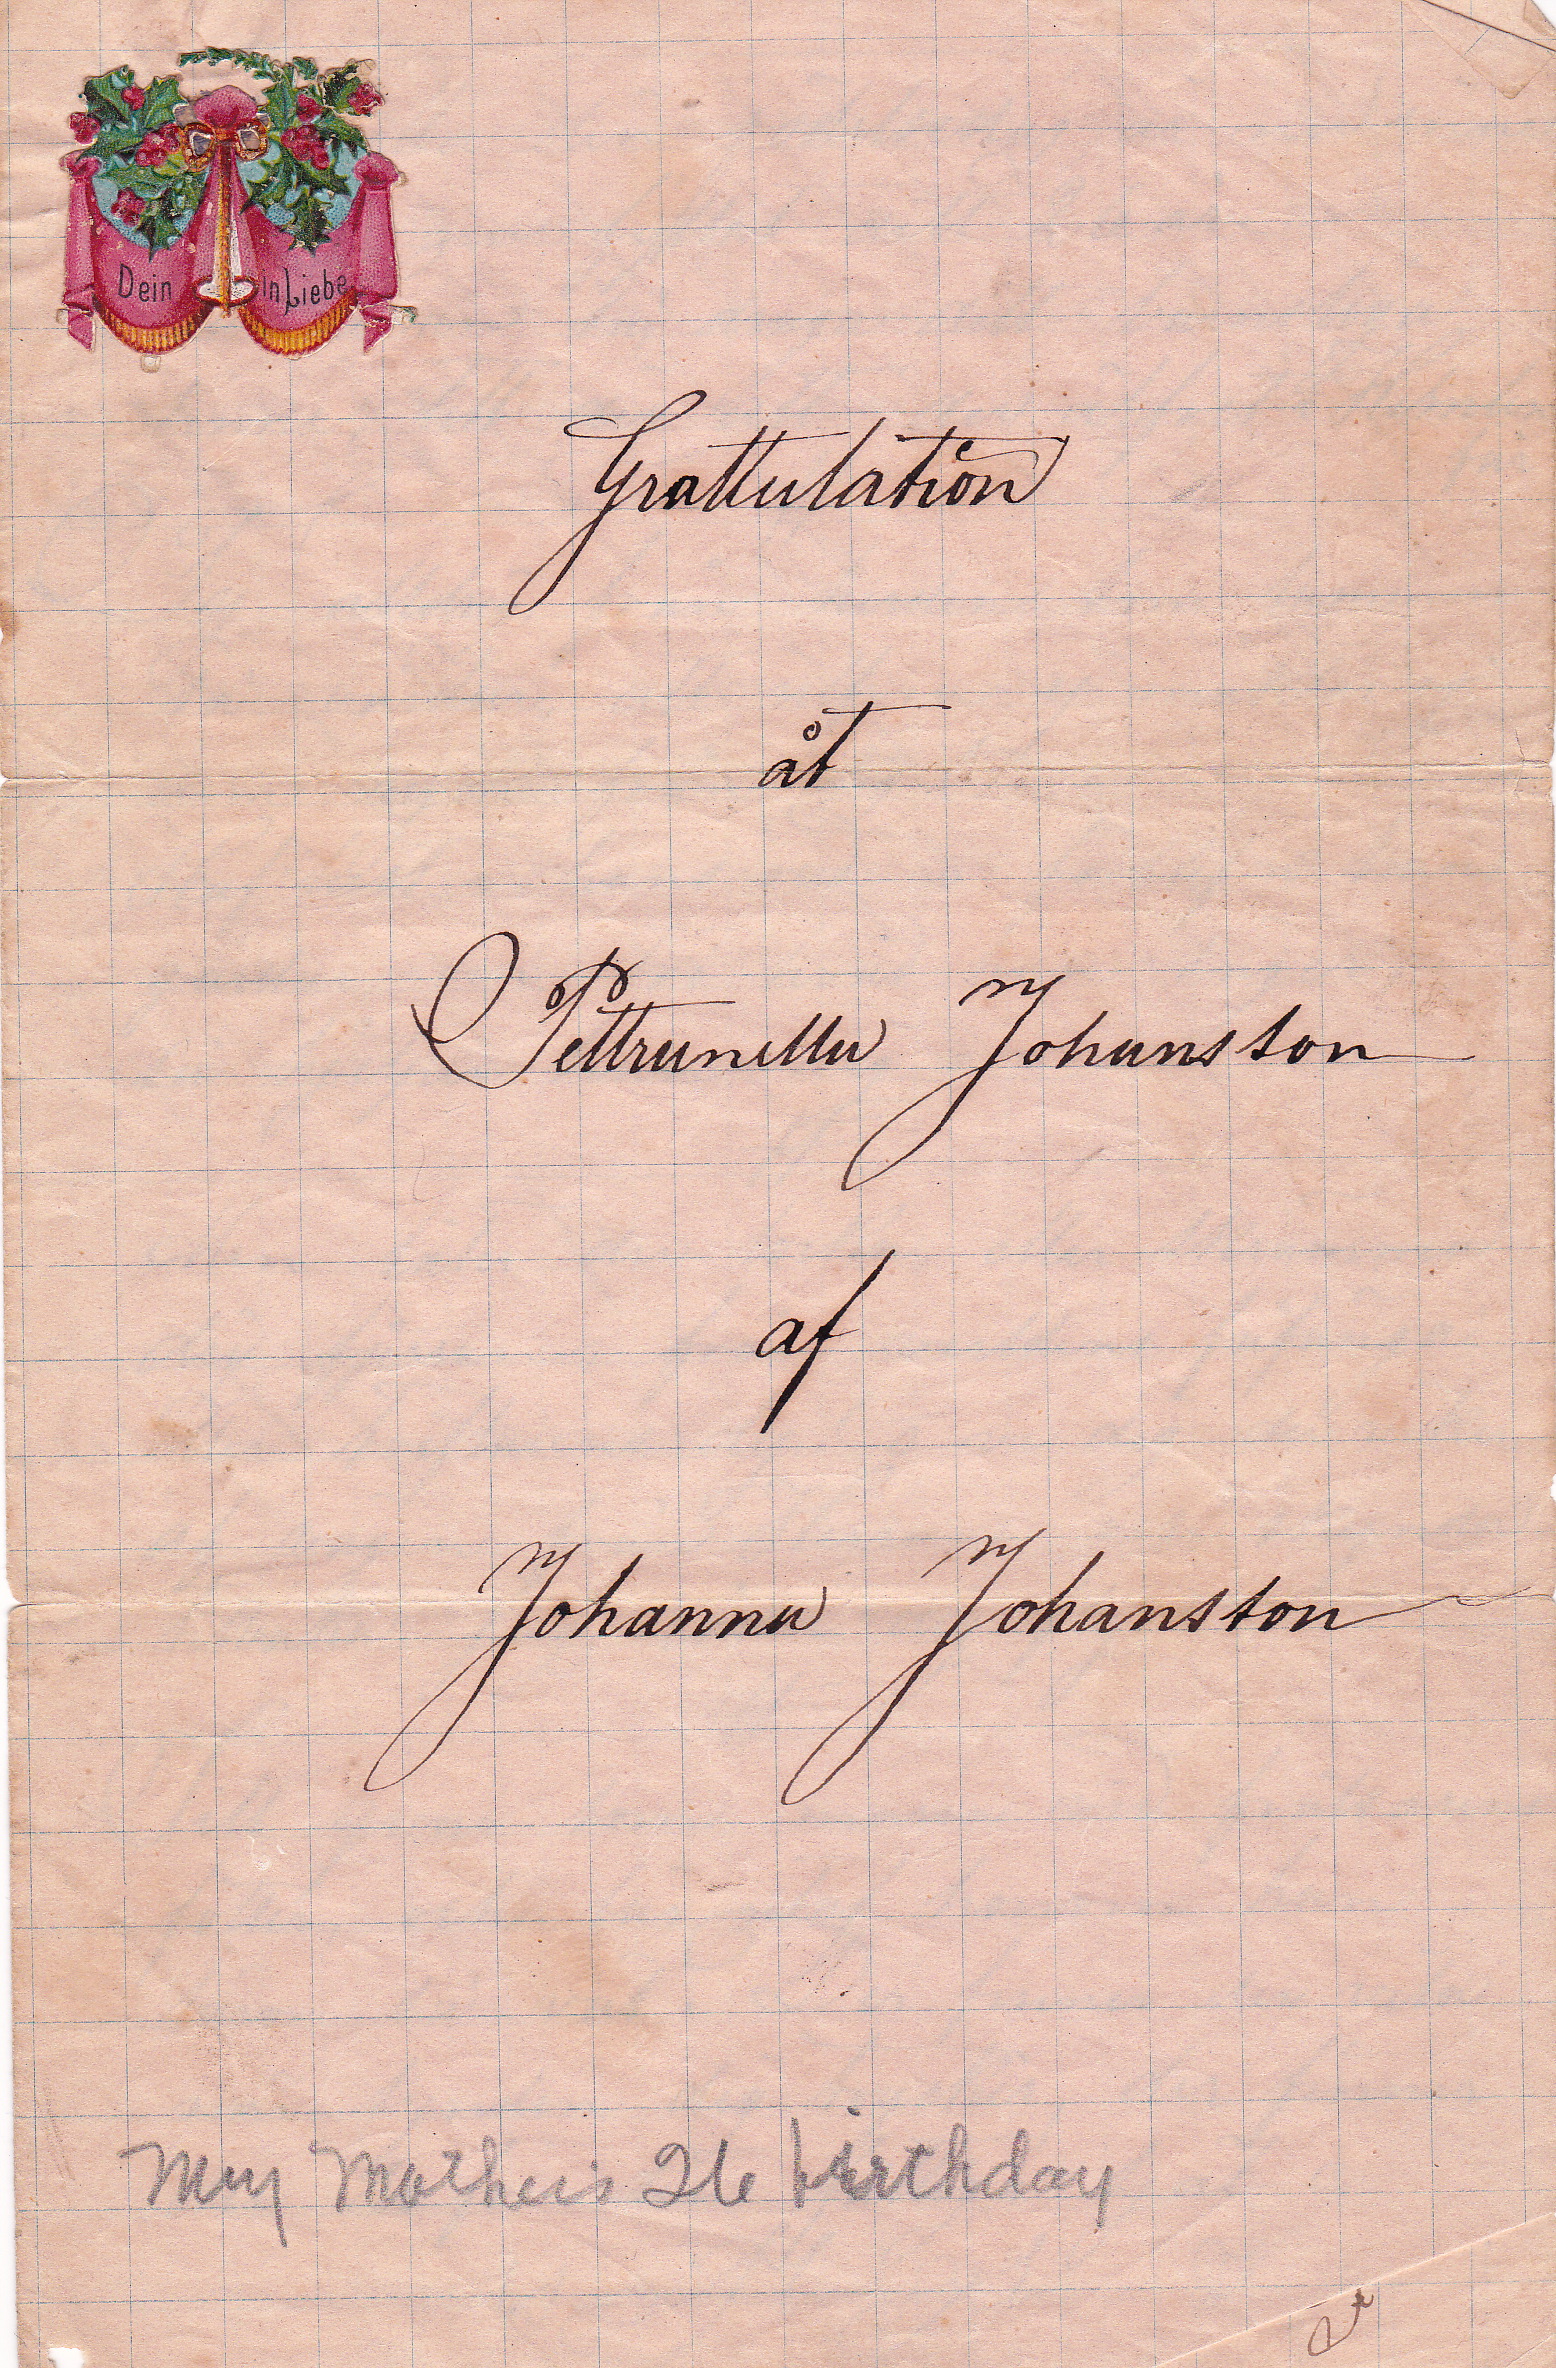 Dein in Liebe
Grattulation
åt
Pettrunella Johansson
af
Johanna Johansson
My Mother's 26 birthday